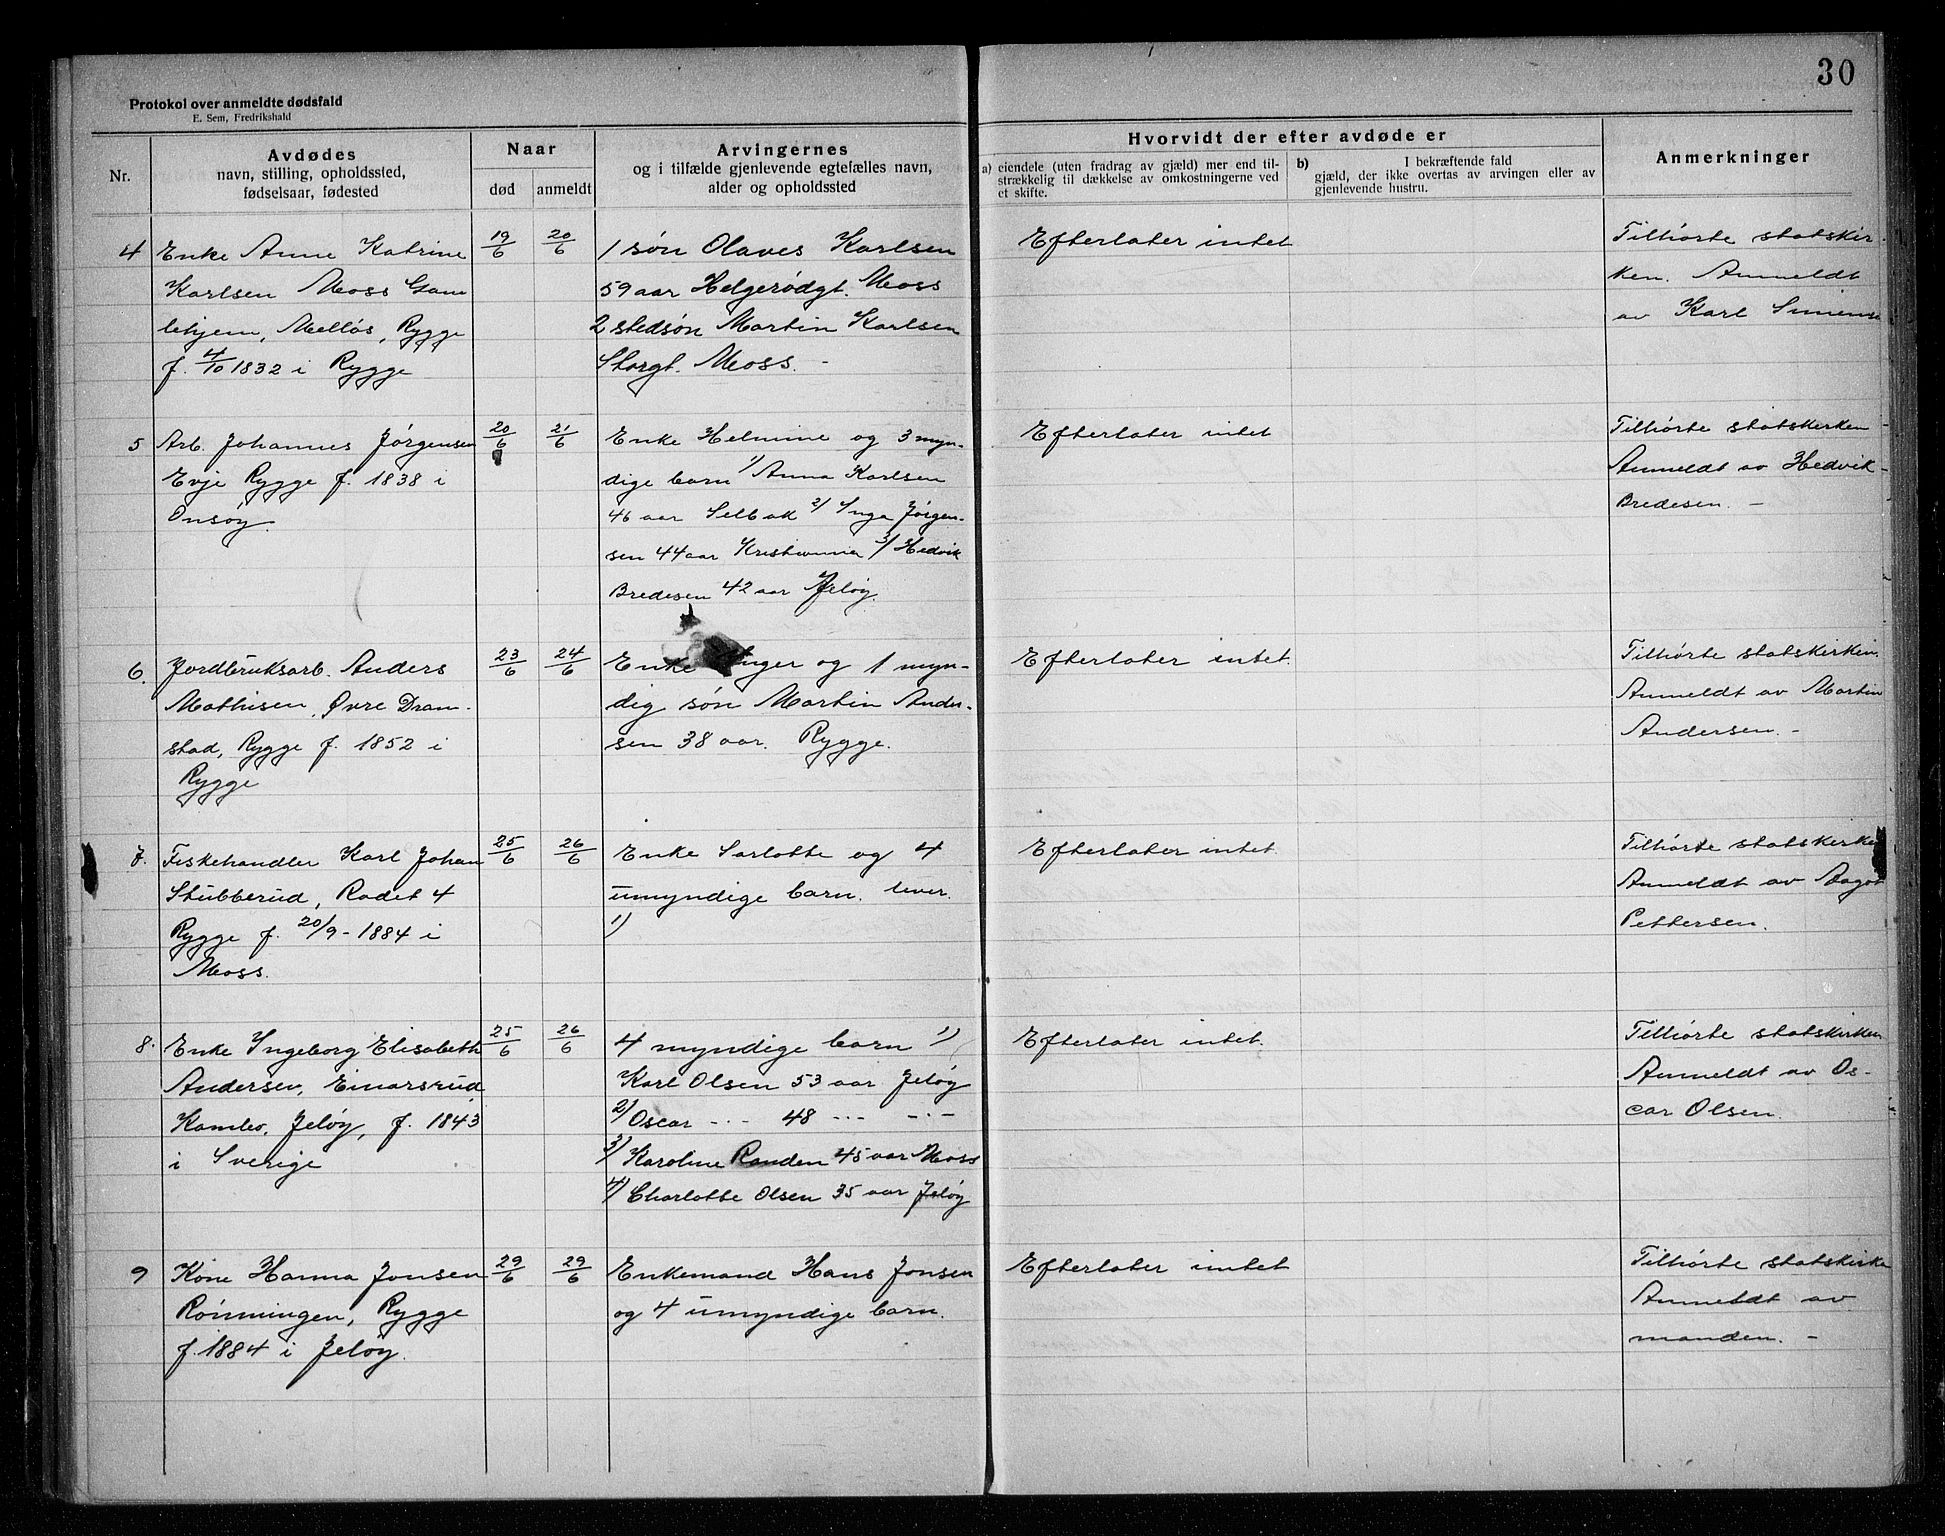 30
Protokol over anmeldte dødsfald
E. Sem, Fredrikshald
Nr.
Avdødes
navn, stilling, opholdssted,
fødselsaar, fødested
Naar
død
anmeldt
Arvingernes
og i tilfælde gjenlevende egtefælles navn,
alder og opholdssted
Hvorvidt der efter avdøde er
a) eiendele (uten fradrag av gjæld) mer end til-
strækkelig til dækkelse av omkostningerne ved
et skifte.
b) I bekræftende fald
gjæld, der ikke overtas av arvingen eller av
gjenlevende hustru.
Anmerkninger
4
Enke Anne Katrine
Karlsen Moss Gam
lehjem, Melløs, Rygge
f. 4/10 1832 i Rygge
19/6
20/6
1 søn Olaves Karlsen
59 aar Helgerødgt. Moss
2 stedsøn Martin Karlsen
Storgt. Moss. -
Efterlater intet
Tilhørte statskir-
ken. Anmeldt
av Karl Simens
5
Arb. Johannes Jørgensen
Evje Rygge f. 1838 i
Onsøy.
20/6
21/6
Enke Helmine og 3 myn-
dige barn 1) Anna Karlsen
46 aar Selbak 2) Inga Jørgen-
sen 44 aar Kristiania 3) Hedvik
Bredesen 42 aar Jeløy.
Efterlater intet
Tilhørte statskirken
Anmeldt av Hedvik
Bredesen. -
6.
Jordbruksarb. Anders
Mathisen, Øvre Dram-
stad, Rygge f. 1852 i
Rygge
23/6
24/6
Enke Inger og 1 myn-
dig søn Martin Ander-
sen 38 aar. Rygge.
Efterlater intet.
Tilhørte statskirken.
Anmeldt av Martin
Andersen. -
7.
Fiskehandler Karl Johan
Stubberud, Rådet 4
Rygge f. 20/9 - 1884 i
Moss.
25/6
26/6
Enke Sarlotte og 4
umyndige barn. lever.
1)
Efterlater intet.
Tilhørte statskirken
Anmeldt av Aagot
Pettersen.
8.
Enke Ingeborg Elisabeth
Andersen, Einarsrud
Kambo, Jeløy, f. 1843
i Sverige
25/6
26/6
4 myndige barn 1)
Karl Olsen 53 aar Jeløy
2) Oscar -..- 48 -..- -..-
3) Karoline Randen 45 aar Moss
4) Charlotte Olsen 35 aar Jeløy
Efterlater intet.
Tilhørte statskirken
Anmeldt av Os-
car Olsen.
9
Kone Hanna Jonsen
Rønningen, Rygge
f. 1884 i Jeløy.
29/6
29/6
Enkemand Hans Jonsen
og 4 umyndige barn.
Efterlater intet
Tilhørte statskirke
Anmeldt av
manden. -